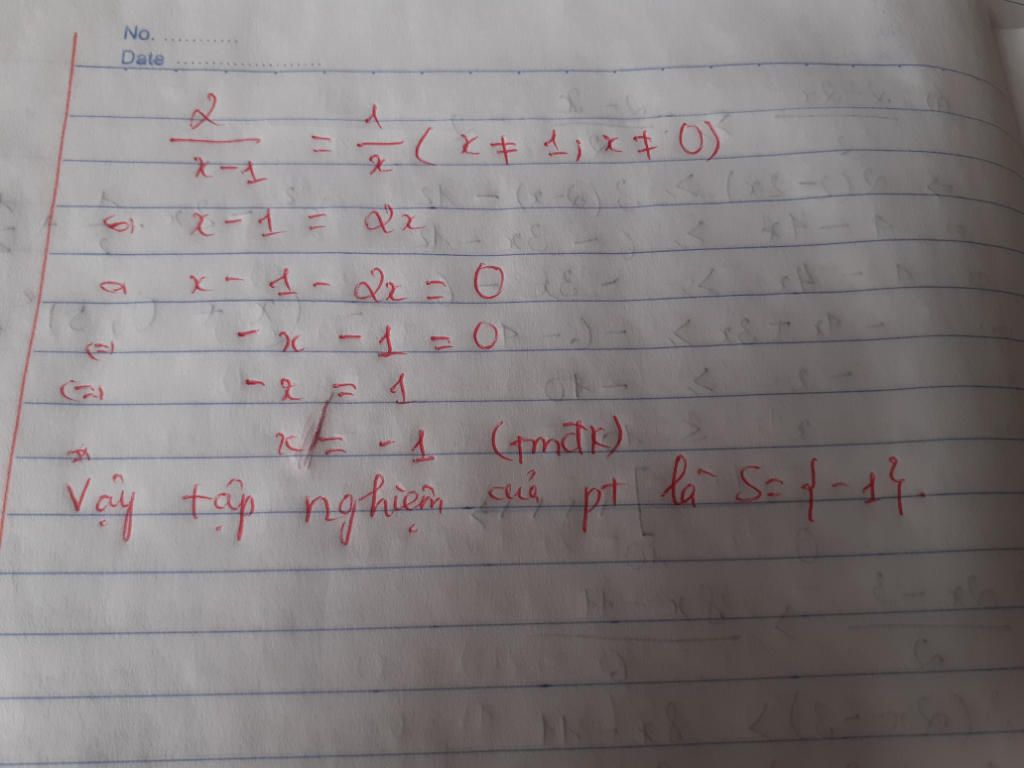 No. ............
Date ........................
2/(x-1) = 1/x ( x ≠ 1; x ≠ 0)
⇔ x - 1 = 2x
⇔ x - 1 - 2x = 0
⇔ - x - 1 = 0
⇔ - x = 1
⇔ x = - 1 (tmđk)
Vậy tập nghiệm của pt là S = {-1}.